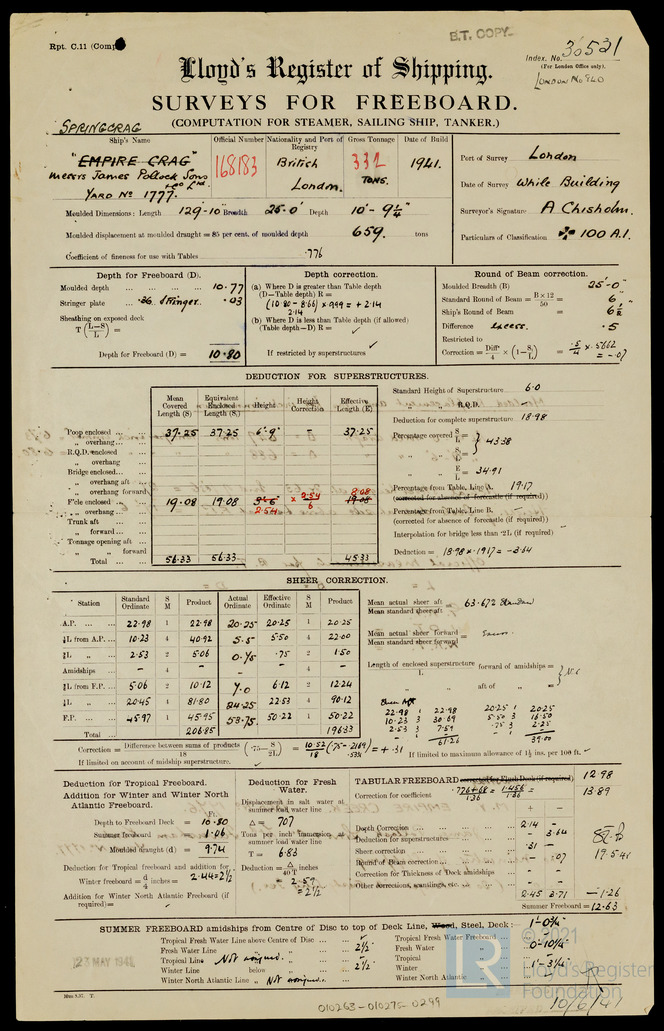 Rpt. C.11 (Comp
B.T. COPY
Index. No. 30531
(For London Office only).
LONDON No 940
Lloyd's Register of Shipping.
SURVEYS FOR FREEBOARD.
(COMPUTATION FOR STEAMER, SAILING SHIP, TANKER.)
SPRINGCRAG
Ship's Name Official Number Nationality and Port of Registry Gross Tonnage Date of Build
"EMPIRE CRAG" 168183 British 332 1941.
Messrs James Pollock Sons & Co Ltd. London. TONS.
YARD No 1777.
Port of Survey London
Date of Survey While Building
Surveyor's Signature A Chisholm.
Particulars of Classification 100 A.1.
Moulded Dimensions: Length 129-10 Breadth 25-0 Depth 10'-9¼"
Moulded displacement at moulded draught = 85 per cent. of moulded depth 659. tons
Coefficient of fineness for use with Tables .776
Depth for Freeboard (D).
Moulded depth ... ... ... ... 10.77
Stringer plate ... .03
Sheathing on exposed deck
T (L-S/L) =
Depth for Freeboard (D) = 10.80
Depth correction.
(a) Where D is greater than Table depth
(D—Table depth) R =
(10.80 - 8.66) × .999 = + 2.14
2.14
(b) Where D is less than Table depth (if allowed)
(Table depth—D) R =
If restricted by superstructures
Round of Beam correction.
Moulded Breadth (B) 25'-0"
Standard Round of Beam = B×12/50 = 6"
Ship's Round of Beam = 6½
Difference Excess. .5
Restricted to
Correction = Diff/4 × (1-S/L) = .5/4 × .5662 = -.07
DEDUCTION FOR SUPERSTRUCTURES.
Mean Covered Length (S) Equivalent Enclosed Length (S₁) Height Height Correction Effective Length (E)
Poop enclosed ... 37.25 37.25 6'-9" - 37.25
„ overhang ...
R.Q.D. enclosed
„ overhang
Bridge enclosed...
„ overhang aft
„ overhang forward
F'cle enclosed ... 19.08 19.08 × 2.54/6 8.08
„ overhang ... 2.54
Trunk aft ...
„ forward ...
Tonnage opening aft
„ „ forward
Total ... 56.33 56.33 45.33
Standard Height of Superstructure 6.0
„ „ R.Q.D. -
Deduction for complete superstructure 18.98
Percentage covered S/L = 43.38
„ S₁/L =
„ E/L = 34.91
Percentage from Table, Line A. 19.17
(corrected for absence of forecastle (if required))
Percentage from Table, Line B.
(corrected for absence of forecastle (if required))
Interpolation for bridge less than ·2L (if required)
Deduction = 18.98 × .1917 = -3.64
SHEER CORRECTION.
Station Standard Ordinate S M Product Actual Ordinate Effective Ordinate S M Product
A.P. ... ... 22.98 1 22.98 20.25 20.25 1 20.25
⅙L from A.P. ... 10.23 4 40.92 5.5 5.50 4 22.00
⅓L „ ... 2.53 2 5.06 0.75 .75 2 1.50
Amidships ... - 4 - - 4 -
⅓L from F.P. ... 5.06 2 10.12 7.0 6.12 2 12.24
⅙L „ ... 20.45 4 81.80 24.25 22.53 4 90.12
F.P. ... ... 45.97 1 45.95 53.75 50.22 1 50.22
Total ... 206.85 196.33
Mean actual sheer aft
Mean standard sheer aft = 63.672 Standard
Mean actual sheer forward
Mean standard sheer forward =
Length of enclosed superstructure forward of amidships =
„ „ aft of „ =
Sheer Aft
22.98 1 22.98 20.25 1 20.25
10.23 3 30.69 5.50 3 16.50
2.53 3 7.59 .75 3 2.25
- 1 - - 1 -
61.26 39.00
Correction = Difference between sums of products/18 (·75—S/2L) = 10.52/18 (.75-.2169) .5331 = + .31
If limited on account of midship superstructure.
If limited to maximum allowance of 1½ ins. per 100 ft.
Deduction for Tropical Freeboard.
Addition for Winter and Winter North Atlantic Freeboard.
Depth to Freeboard Deck = 10.80
Summer freeboard = 1.06
Moulded draught (d) = 9.74
Deduction for Tropical freeboard and addition for
Winter freeboard = d/4 inches = 2.44 = 2½
Addition for Winter North Atlantic Freeboard (if required) =
Deduction for Fresh Water.
Displacement in salt water at summer load water line
Δ = 707
Tons per inch immersion at summer load water line
T = 6.83
Deduction = Δ/40T inches
= 2.59
= 2½
TABULAR FREEBOARD corrected for Flush Deck (if required) 12.98
Correction for coefficient .776+.68/1.36 = 1.456/1.36 = 13.89
+ -
Depth Correction ... 2.14 -
Deduction for superstructures ... - 3.64
Sheer correction ... .31 -
Round of Beam correction ... - .07
Correction for Thickness of Deck amidships - -
Other corrections, scantlings, etc. ... - -
2.45 3.71 -1.26
Summer Freeboard = 12.63
SUMMER FREEBOARD amidships from Centre of Disc to top of Deck Line, Wood, Steel, Deck :- 1'-0¾"
Tropical Fresh Water Line above Centre of Disc ...
Fresh Water Line „ „ ... 2½
Tropical Line Not assigned. „ ...
Winter Line below „ ... 2½
Winter North Atlantic Line „ Not assigned. „ ...
Tropical Fresh Water Freeboard
Fresh Water „ 0'-10¼"
Tropical „
Winter „ 1'-3¼"
Winter North Atlantic „
23 MAY 1941
010263-010275-0299
10/6/41
© 2021
LR
Lloyd's Register
Foundation